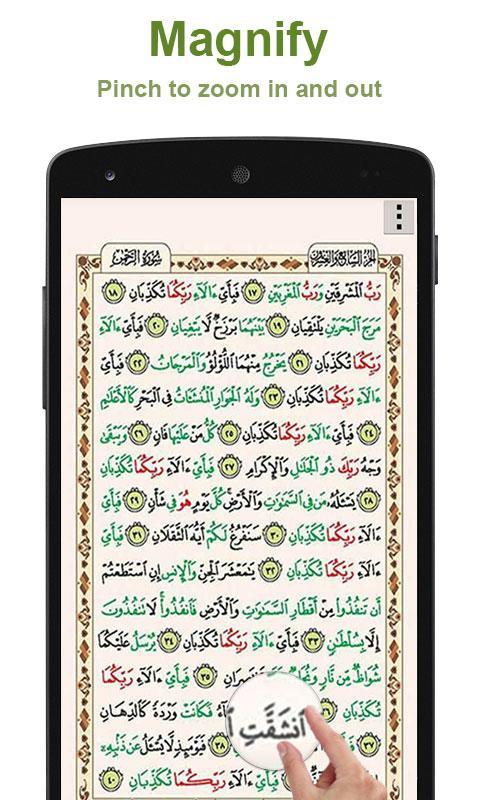 Magnify
Pinch to zoom in and out
سُورَةُ الرَّحْمٰن
الجزء السابع والعشرون
رَبُّ الْمَشْرِقَيْنِ وَرَبُّ الْمَغْرِبَيْنِ ١٧ فَبِأَيِّ ءَالَآءِ رَبِّكُمَا تُكَذِّبَانِ ١٨
مَرَجَ الْبَحْرَيْنِ يَلْتَقِيَانِ ١٩ بَيْنَهُمَا بَرْزَخٌ لَّا يَبْغِيَانِ ٢٠ فَبِأَيِّ ءَالَآءِ
رَبِّكُمَا تُكَذِّبَانِ ٢١ يَخْرُجُ مِنْهُمَا اللُّؤْلُؤُ وَالْمَرْجَانُ ٢٢ فَبِأَيِّ
ءَالَآءِ رَبِّكُمَا تُكَذِّبَانِ ٢٣ وَلَهُ الْجَوَارِ الْمُنْشَئَاتُ فِي الْبَحْرِ كَالْأَعْلَامِ
٢٤ فَبِأَيِّ ءَالَآءِ رَبِّكُمَا تُكَذِّبَانِ ٢٥ كُلُّ مَنْ عَلَيْهَا فَانٍ ٢٦ وَيَبْقَى
وَجْهُ رَبِّكَ ذُو الْجَلَالِ وَالْإِكْرَامِ ٢٧ فَبِأَيِّ ءَالَآءِ رَبِّكُمَا تُكَذِّبَانِ
٢٨ يَسْئَلُهُ مَنْ فِي السَّمَوَاتِ وَالْأَرْضِ كُلَّ يَوْمٍ هُوَ فِي شَأْنٍ ٢٩ فَبِأَيِّ
ءَالَآءِ رَبِّكُمَا تُكَذِّبَانِ ٣٠ سَنَفْرُغُ لَكُمْ أَيُّهَ الثَّقَلَانِ ٣١ فَبِأَيِّ
ءَالَآءِ رَبِّكُمَا تُكَذِّبَانِ ٣٢ يَمَعْشَرَ الْجِنِّ وَالْإِنسِ إِنِ اسْتَطَعْتُمْ
أَن تَنفُذُوا مِنْ أَقْطَارِ السَّمَوَاتِ وَالْأَرْضِ فَانفُذُوا لَا تَنفُذُونَ
إِلَّا بِسُلْطَانٍ ٣٣ فَبِأَيِّ ءَالَآءِ رَبِّكُمَا تُكَذِّبَانِ ٣٤ يُرْسَلُ عَلَيْكُمَا
شُوَاظٌ مِّن نَّارٍ ٣٥ فَبِأَيِّ ءَالَآءِ رَبِّكُمَا
تُكَذِّبَانِ ٣٦ انشَقَّتِ فَكَانَتْ وَرْدَةً كَالدِّهَانِ
٣٧ ٣٨ فَيَوْمَئِذٍ لَّا يُسْئَلُ عَن ذَنبِهِ
فَبِأَيِّ ءَالَآءِ رَبِّكُمَا تُكَذِّبَانِ ٤٠